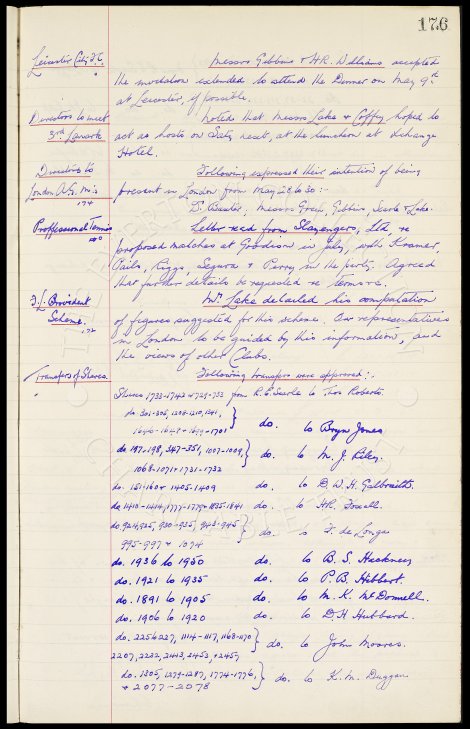 176
Leicester City F.C. Messrs Gibbins & H.R. Williams accepted
the invitation extended to attend the Dinner on May 9th
at Leicester, if possible.
Directors to meet Noted that Messrs Lake & Coffey hoped to
3rd Lanark act as hosts on Satdy next, at the luncheon at Exchange
Hotel.
Directors to Following expressed their intention of being
London Mtgs present in London from May 28 to 30:-
174
Dr. Baxter, Messrs Green, Gibbins, Searle & Lake.
Proffessional Tennis Letter rec'd from Slazengers, Ltd re
proposed matches at Goodison in July, with Kramer,
Pails, Riggs, Segura & Perry, in the party. Agreed
that further details be requested re terms.
F.L. Provident Mr Lake detailed his computation
Scheme. 172 of figures suggested for this scheme. Our representatives
in London to be guided by this information, and
the views of other Clubs.
Transfers of Shares Following transfers were approved:-
Shares 1733-1742 & 729-733 from R.E. Searle to Thos Roberts.
do. 301-305, 1208-1210, 1341,
1646-1648 & 1699-1701 do. to Bryn Jones
do 187-198, 347-351, 1007-1009,
1068-1071 & 1731-1732 do. to M. J. Riley.
do. 151-160 & 1405-1409 do. to D. W. H. Galbraith.
do 1410-1414, 1777-1779 & 1835-1841 do. to H.R. Fowell.
do. 924, 925, 930-935, 943-945
995-997 & 1074 do. to F. de Longa
do. 1936 to 1950 do. to B. S. Hackney
do. 1921 to 1935 do. to P. B. Hibbert.
do. 1891 to 1905 do. to M. K. McDonnell.
do. 1906 to 1920 do. to D.H Hubbard.
do. 2256 227, 1114-1117, 1168-1170
2207, 2232, 2443, 2453, & 2457, do. to John Moores.
do. 1305, 1279-1287, 1774-1776,
& 2077-2078 do. to K. M. Duggan